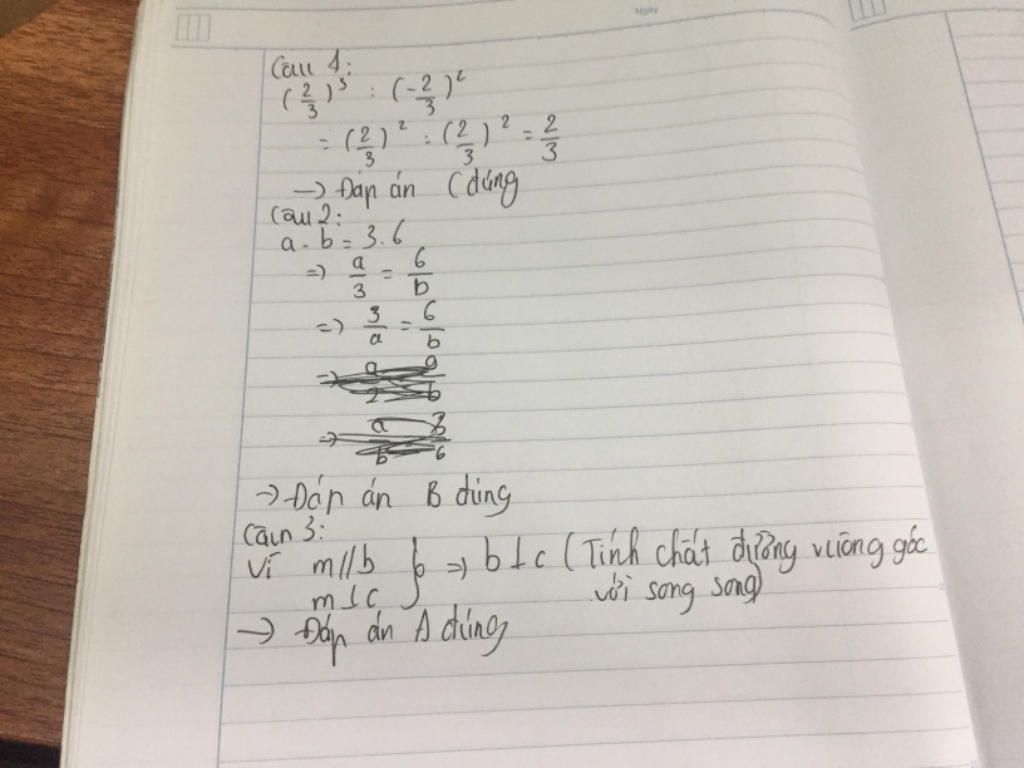 Ngày
Câu 1:
(2/3)³ : (-2/3)²
= (2/3)² : (2/3)² = 2/3
→ Đáp án C đúng
Câu 2:
a.b = 3.6
=> a/3 = 6/b
=> 3/a = 6/b
→ Đáp án B đúng
Câu 3:
Vì m//b } => b⊥c (Tính chất đường vuông góc
m⊥c với song song)
→ Đáp án A đúng